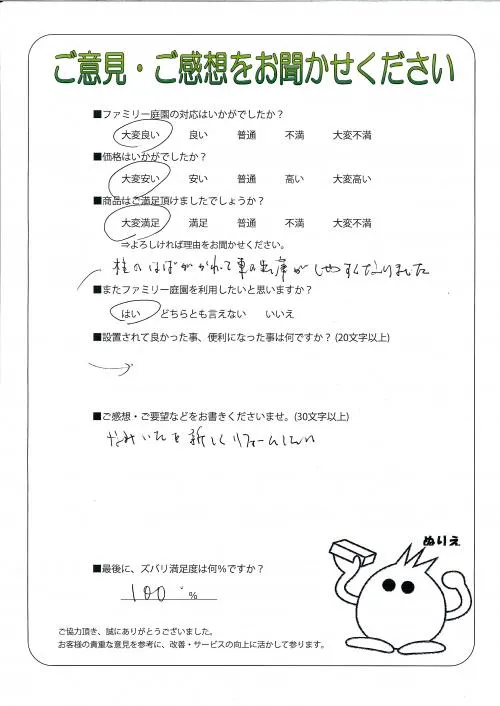 ご意見・ご感想をお聞かせください
■ファミリー庭園の対応はいかがでしたか？
大変良い 良い 普通 不満 大変不満
■価格はいかがでしたか？
大変安い 安い 普通 高い 大変高い
■商品はご満足頂けましたでしょうか？
大変満足 満足 普通 不満 大変不満
⇒よろしければ理由をお聞かせください。
柱のはばがかわって車の出庫がしやすくなりました
■またファミリー庭園を利用したいと思いますか？
はい どちらとも言えない いいえ
■設置されて良かった事、便利になった事は何ですか？(20文字以上)
■ご感想・ご要望などをお書きくださいませ。(30文字以上)
を新しくリフォームしたい
ぬりえ
■最後に、ズバリ満足度は何%ですか？
100 %
ご協力頂き、誠にありがとうございました。
お客様の貴重な意見を参考に、改善・サービスの向上に活かして参ります。